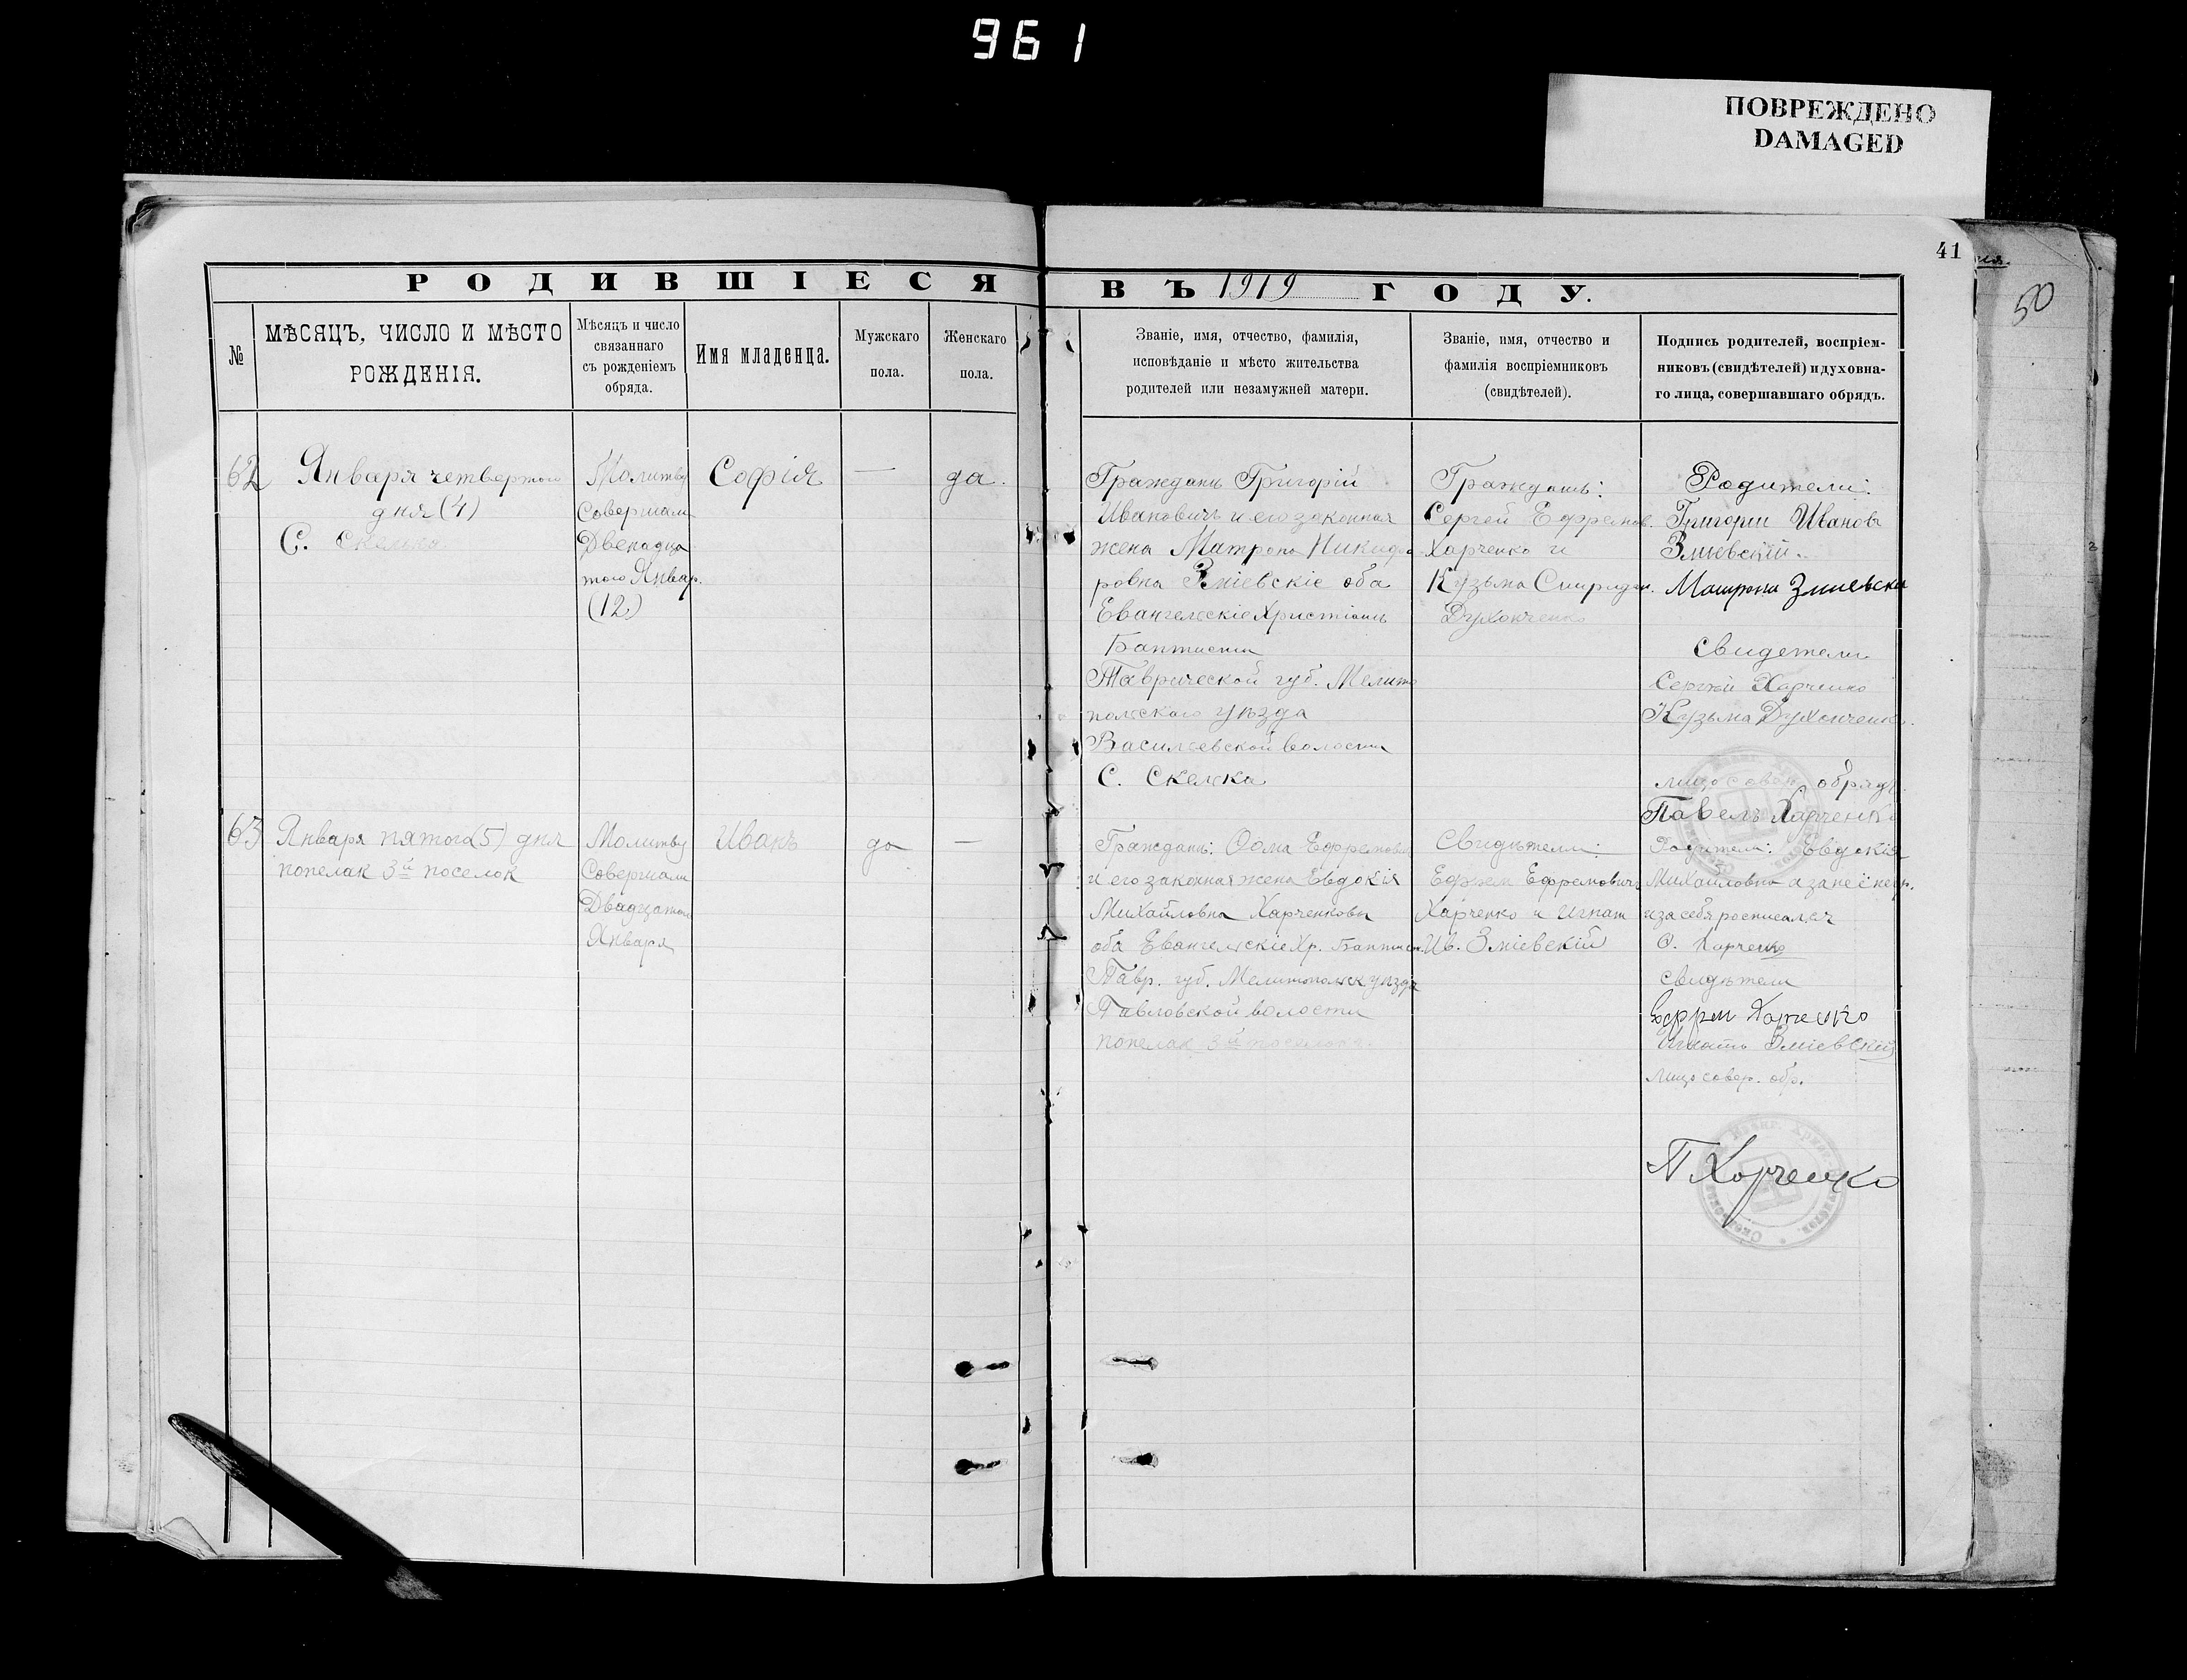 961
ПОВРЕЖДЕНО
DAMAGED
41
50
РОДИВШІЕСЯ ВЪ 1919 ГОДУ.
№
МѢСЯЦЪ, ЧИСЛО И МѢСТО
РОЖДЕНІЯ.
Мѣсяцъ и число
связаннаго
съ рожденіемъ
обряда.
Имя младенца.
Мужскаго
пола.
Женскаго
пола.
Званіе, имя, отчество, фамилія,
исповѣданіе и мѣсто жительства
родителей или незамужней матери.
Званіе, имя, отчество и
фамилія воспріемниковъ
(свидѣтелей).
Подпись родителей, воспріем-
никовъ (свидѣтелей) и духовна-
го лица, совершавшаго обрядъ.
62
Января четвертого
дня (4)
С. Скелька
Молитву
Совершали
Двенадца
того Январ.
(12)
Софія
—
да.
Граждань Григорій
Ивановичъ и его законная
жена Матрона Никифо
ровна Зміевскіе оба
Евангельскіе Христіань
Баптисты
Таврической губ. Мелито
польскаго уѣзда
Васильевской волости
С. Скелька
Граждань:
Сергей Ефремов.
Харченко и
Кузьма Спиридон.
Духонченко
Родители:
Григории Иванов
Змиевский.
Матрона Змиевска
Свидетели
Сергѣй Харченко
Кузьма Духонченко.
лицо совер. обрядъ.
Павелъ Харченко
63
Января пятого (5) дня
попелак 3й поселок
Молитву
Совершали
Двадцатого
Января
Иванъ
да
—
Граждань: Ѳома Ефремович
и его законная жена Евдокія
Михайловна Харченковы
оба Евангельскіе Хр. Баптист.
Тавр. губ. Мелитопольск уѣзда
Павловской волости
попелак 3й поселок.
Свидѣтели:
Ефрем Ефремовичъ
Харченко и Игнат
Ив. Зміевскій
Родители: Евдокія
Михайловна а за неё негр.
и за себя росписался
Ѳ. Харченко
Свидѣтели
Ефрем Харченко
Игнатъ Зміевскій
лицо совер. обр.
П Харченко